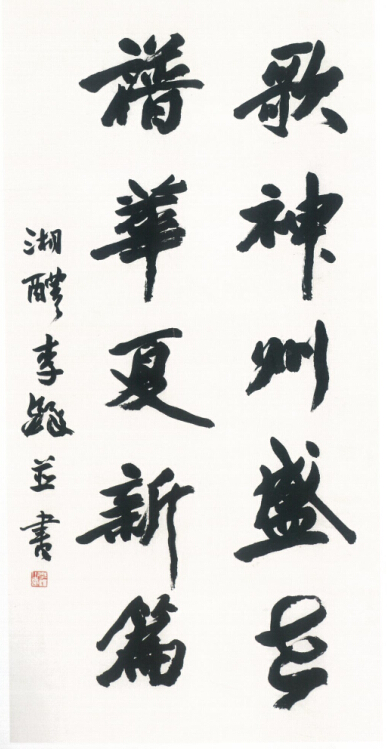 歌神州盛世
譜華夏新篇
湘醴李並書